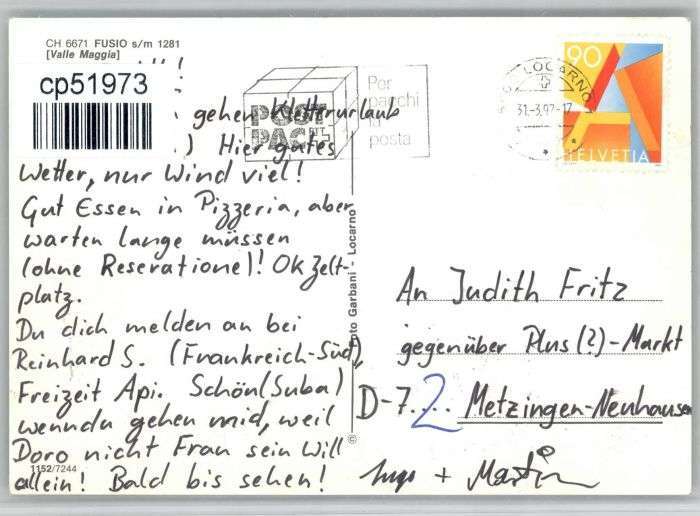 CH 6671 FUSIO s/m 1281
[Valle Maggia]
cp51973
gehen Kletterurlaub
) Hier gutes
Wetter, nur Wind viel!
Gut Essen in Pizzeria, aber
warten lange müssen
(ohne Reservatione)! Ok Zelt-
platz.
Du dich melden an bei
Reinhard S. (Frankreich-Süd),
Freizeit Api. Schön (Suba)
wenndu gehen mid, weil
Doro nicht Frau sein will
allein! Bald bis sehen!
1152/7244
Foto Garbani - Locarno
©
POST
PAC
Per
pacchi
la
posta
LOCARNO
31.-3.97-17
90
A
HELVETIA
An Judith Fritz
gegenüber Plus(?)-Markt
D-7....2 Metzingen-Neuhausen
+ Martin